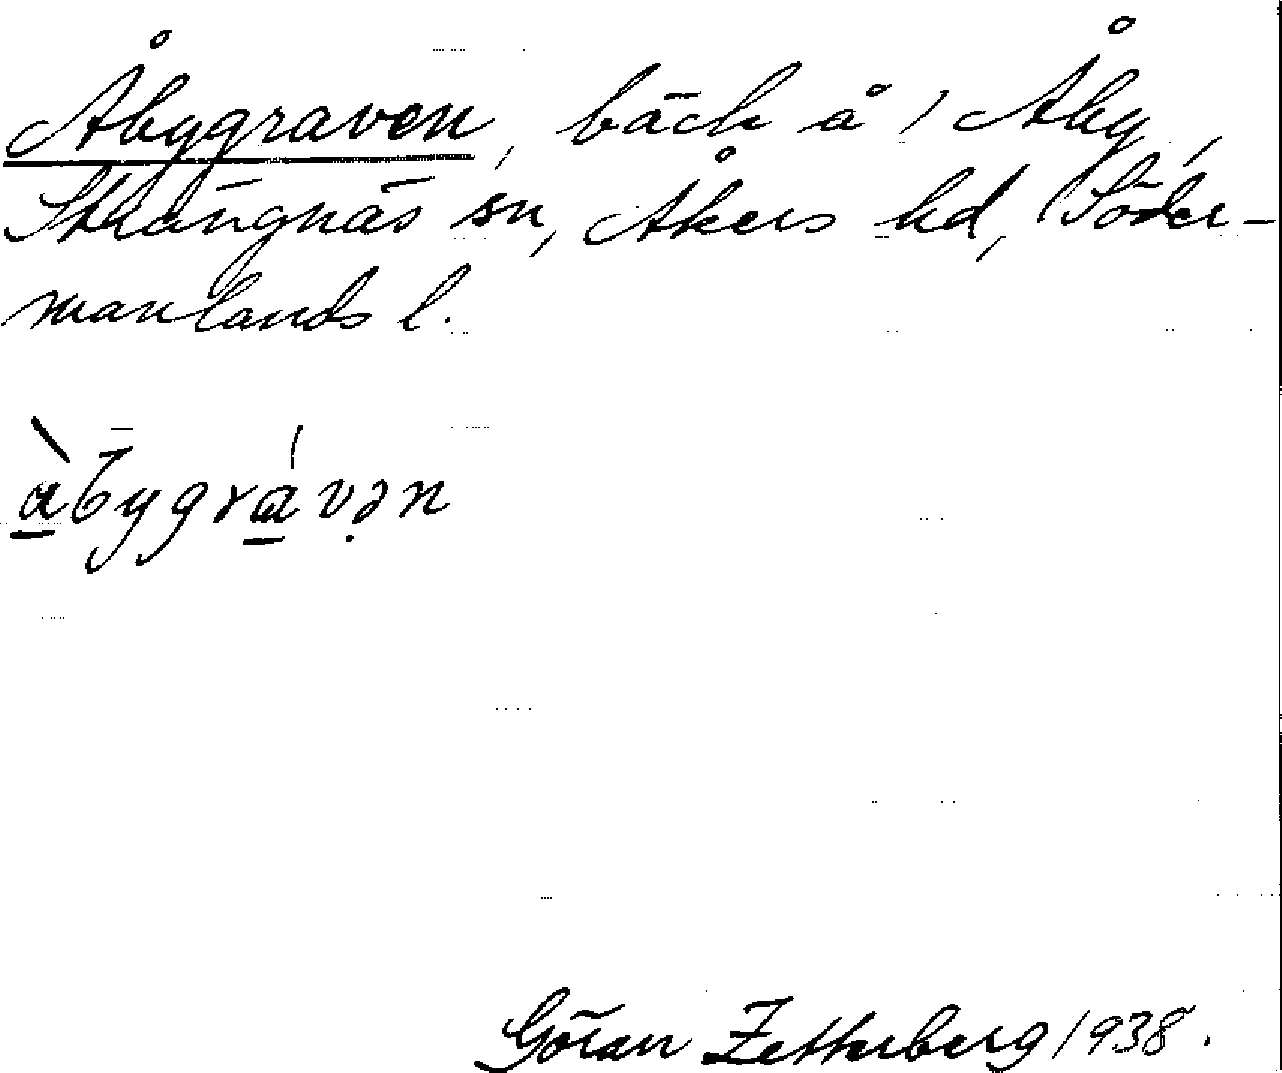 Åbygraven, bäck å 1 Åby,
Strängnäs sn, Åkers hd, Söder-
manlands l.
àbygrávən
Göran Zetterberg 1938.